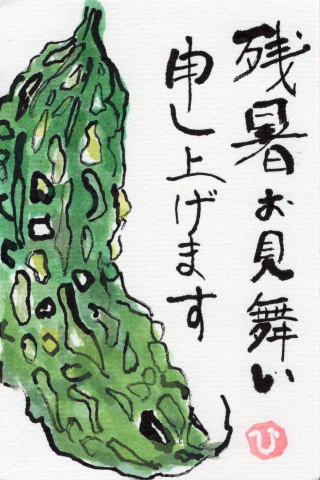 残暑お見舞い
申し上げます
ひ